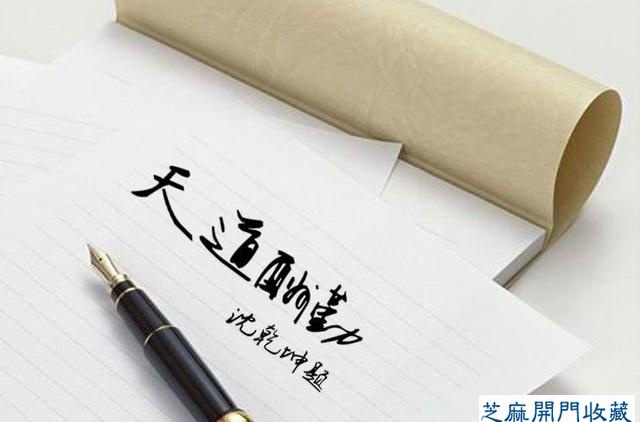 天道酬勤
沈乾坤题
芝麻開門收藏